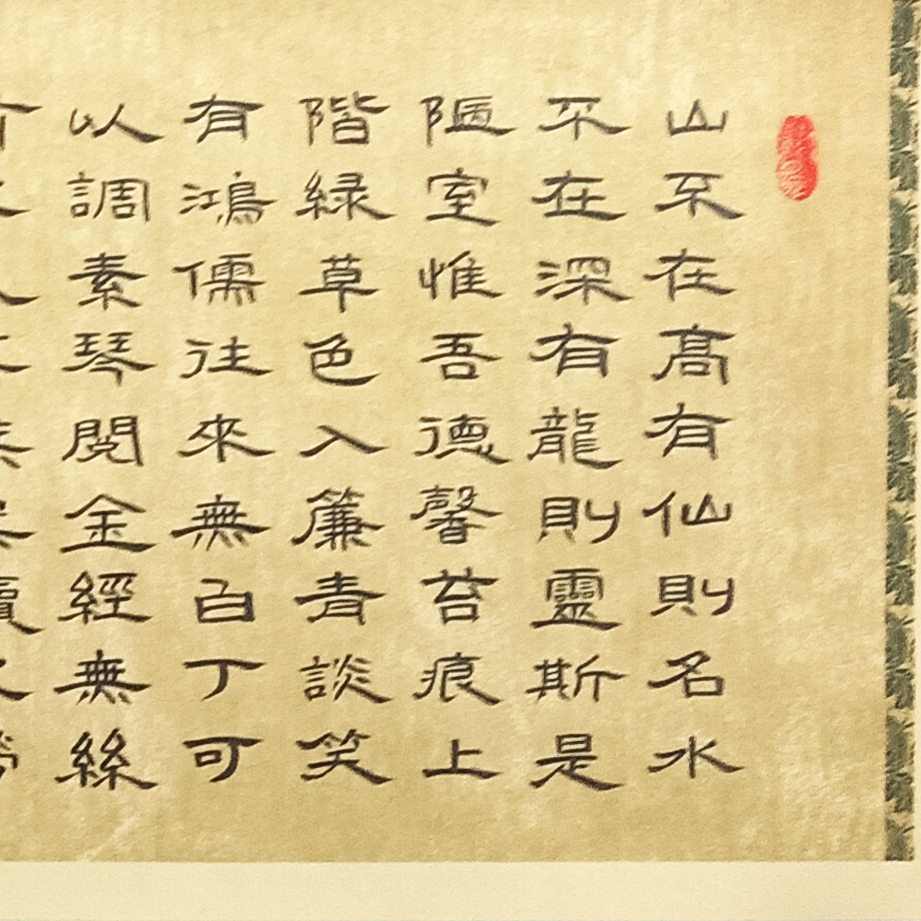 山不在髙有仙則名水
不在深有龍則靈斯是
陋室惟吾德馨苔痕上
階緑草色入簾青談笑
有鴻儒往來無白丁可
以調素琴閱金經無絲